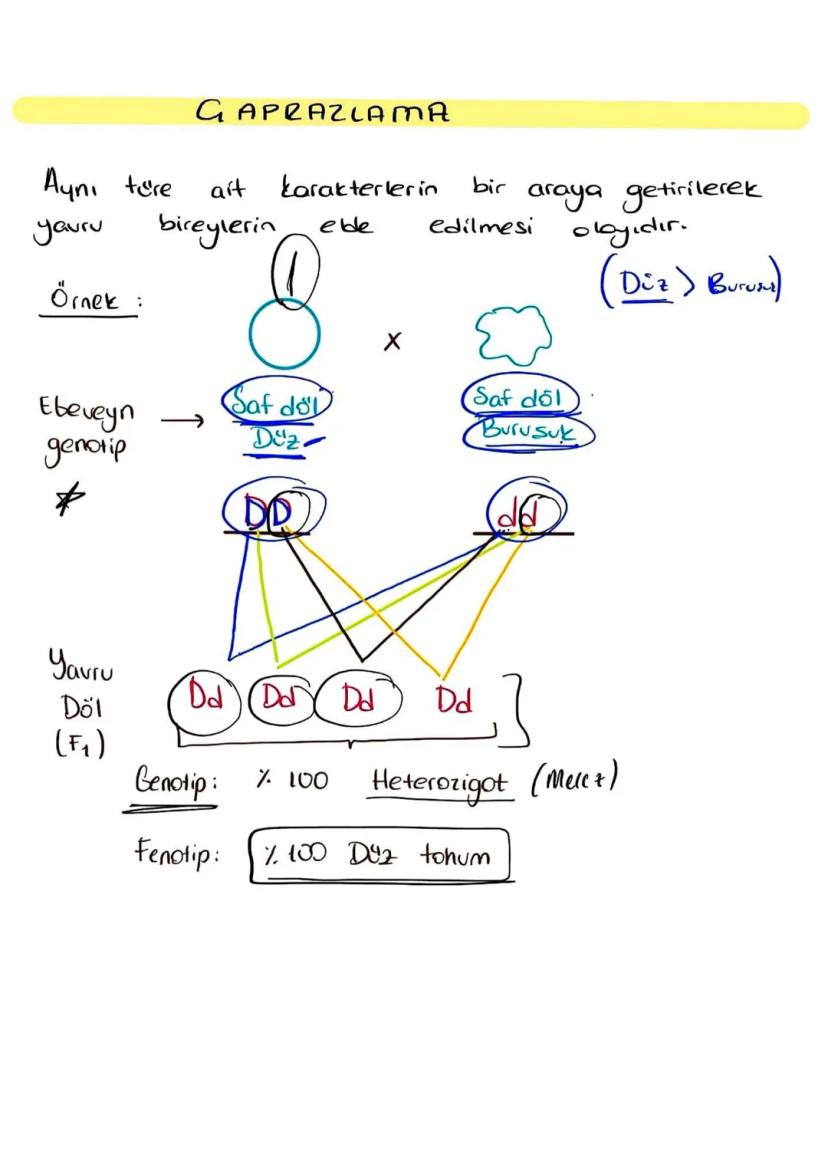 ÇAPRAZLAMA
Aynı türe ait karakterlerin bir araya getirilerek
yavru bireylerin elde edilmesi olayıdır.
(Düz > Buruşuk)
Örnek :
1
x
Ebeveyn → Saf döl Saf döl
genotip Düz Buruşuk
DD dd
Yavru
Döl Dd Dd Dd Dd
(F1)
Genotip: % 100 Heterozigot (Melez)
Fenotip: % 100 Düz tohum